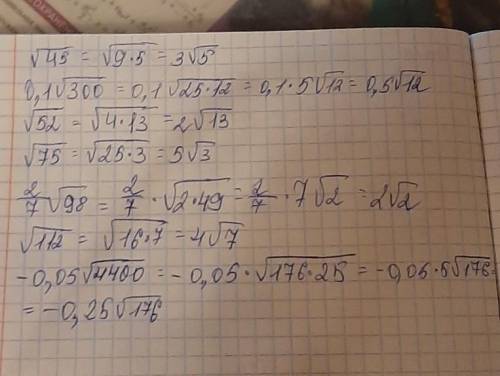 √45 = √9·5 = 3√5
0,1√300 = 0,1√25·12 = 0,1·5√12 = 0,5√12
√52 = √4·13 = 2√13
√75 = √25·3 = 5√3
2/7√98 = 2/7·√2·49 = 2/7·7√2 = 2√2
√112 = √16·7 = 4√7
-0,05√4400 = -0,05·√176·25 = -0,05·5√176=
= -0,25√176